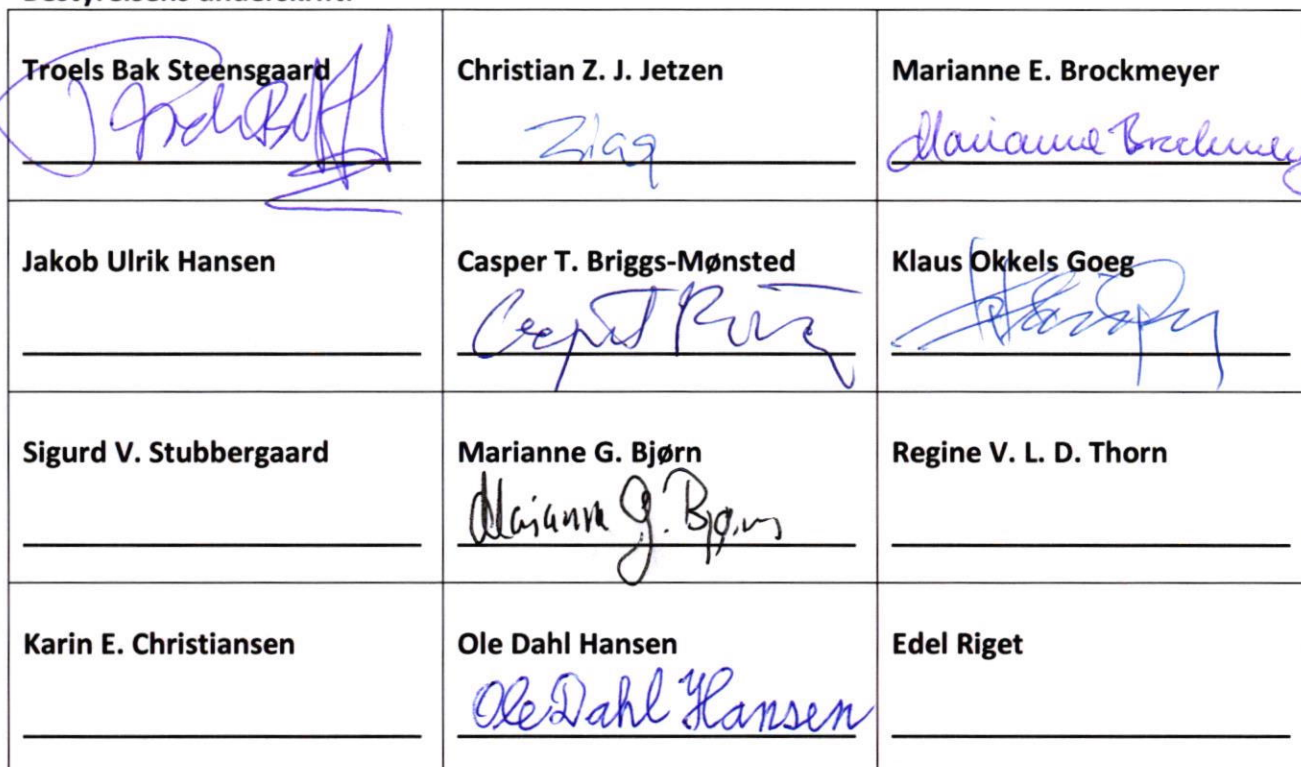 Troels Bak Steensgaard
Christian Z. J. Jetzen
Marianne E. Brockmeyer
Marianne Brockmey
Jakob Ulrik Hansen
Casper T. Briggs-Mønsted
Klaus Okkels Goeg
Sigurd V. Stubbergaard
Marianne G. Bjørn
Regine V. L. D. Thorn
Marianne G. Bjørn
Karin E. Christiansen
Ole Dahl Hansen
Edel Riget
Ole Dahl Hansen